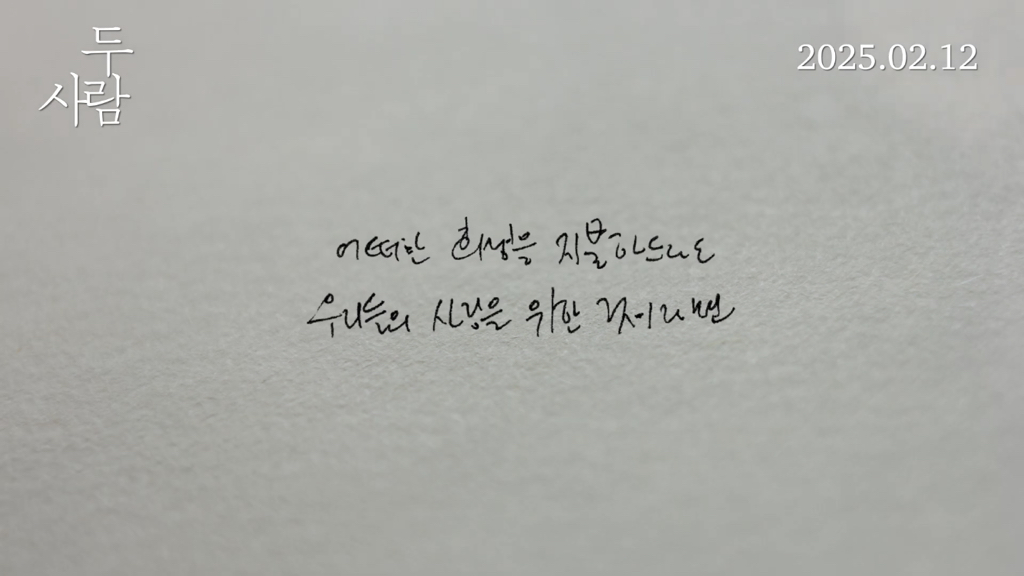 두
사람
2025.02.12
어떠한 희생을 지불하드라도
우리들의 사랑을 위한 것이라면